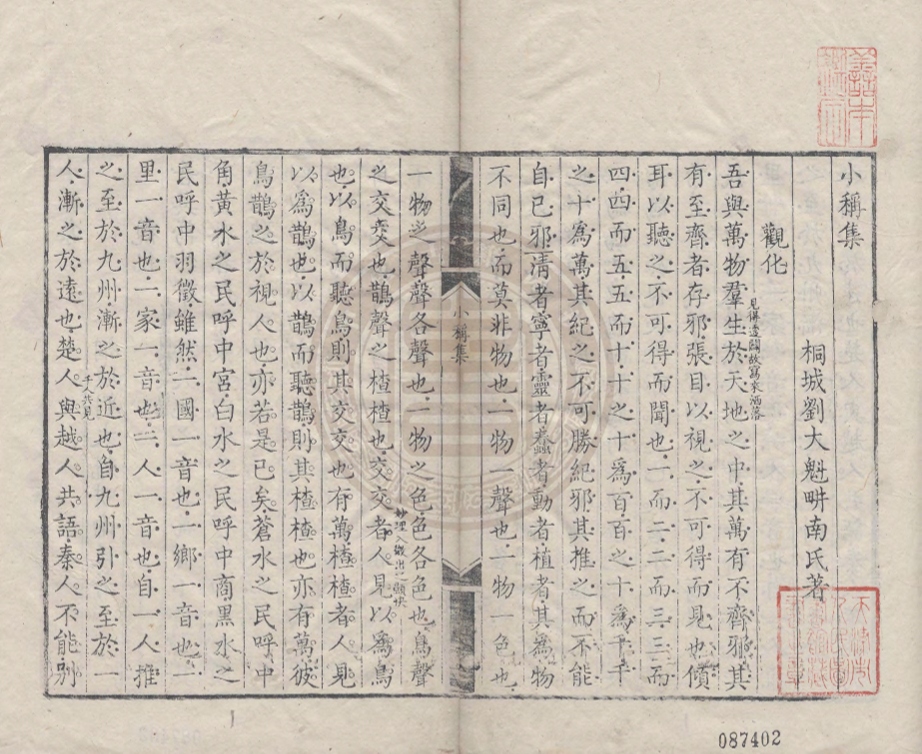 小稱集
桐城劉大魁畊南氏著
觀化
見得透闢故寫來洒落
吾與萬物羣生於天地之中其萬有不齊邪其
有至齊者存邪張目以視之不可得而見也傾
耳以聽之不可得而聞也一而二二而三三而
四四而五五而十十之十爲百百之十爲千千
之十爲萬其紀之不可勝紀邪其推之而不能
自已邪清者寧者靈者蠢者動者植者其爲物
不同也而莫非物也一物一聲也一物一色也
小稱集
一物之聲聲各聲也一物之色色各色也鳥聲
之交交也鵲聲之楂楂也交交者人見以爲鳥
妙理入微出一頭塊
也以鳥而聽鳥則其交交也有萬楂楂者人見
以爲鵲也以鵲而聽鵲則其楂楂也亦有萬彼
鳥鵲之於視人也亦若是已矣蒼水之民呼中
角黃水之民呼中宮白水之民呼中商黑水之
民呼中羽徵雖然一國一音也一鄉一音也一
里一音也一家一音也一人一音也自一人推
之至於九州漸之於近也自九州引之至於一
人漸之於遠也楚人與越人共語秦人不能別
千人共見
087402